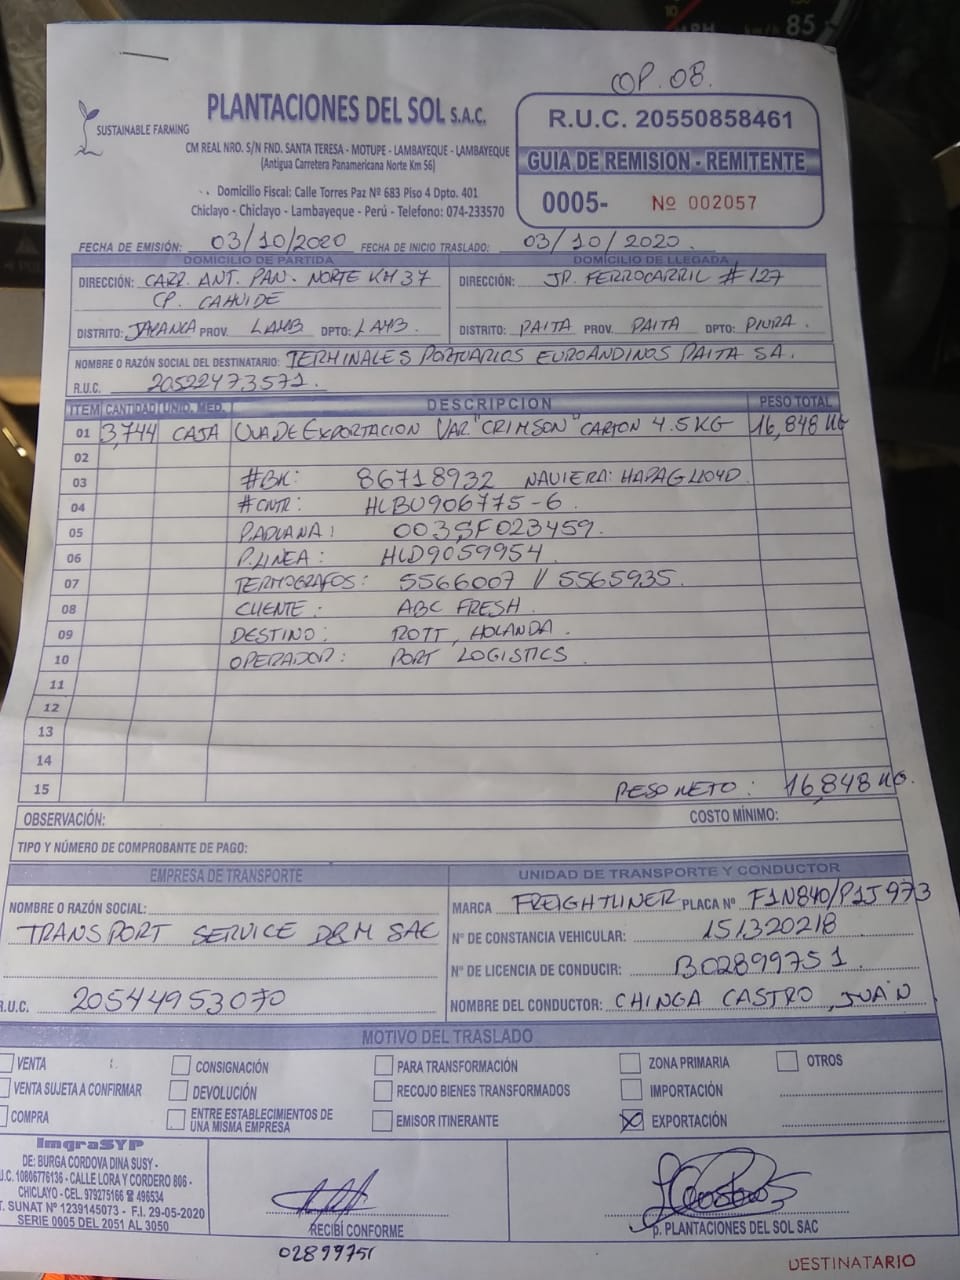 85
OP. 08.
SUSTAINABLE FARMING
PLANTACIONES DEL SOL S.A.C.
CM REAL NRO. S/N FND. SANTA TERESA - MOTUPE - LAMBAYEQUE - LAMBAYEQUE
(Antigua Carretera Panamericana Norte Km 56)
Domicilio Fiscal: Calle Torres Paz Nº 683 Piso 4 Dpto. 401
Chiclayo - Chiclayo - Lambayeque - Perú - Telefono: 074-233570
R.U.C. 20550858461
GUIA DE REMISION - REMITENTE
0005- Nº 002057
FECHA DE EMISIÓN: 03/10/2020 FECHA DE INICIO TRASLADO: 03/10/2020.
DOMICILIO DE PARTIDA
DIRECCIÓN: CARR. ANT. PAN. NORTE KM 37
CP. CAHUIDE
DISTRITO: JAYANCA PROV. LAMB DPTO: LAMB.
DOMICILIO DE LLEGADA
DIRECCIÓN: JR. FERROCARRIL # 127
DISTRITO: PAITA PROV. PAITA DPTO: PIURA.
NOMBRE O RAZÓN SOCIAL DEL DESTINATARIO: TERMINALES PORTUARIOS EUROANDINOS PAITA SA.
R.U.C. 20522473571.
ITEM CANTIDAD UNID. MED. DESCRIPCION PESO TOTAL
01 3,744 CAJA UVA DE EXPORTACION VAR. "CRIMSON" CARTON 4.5KG 16,848 KG
02
03 #BK: 86718932 NAVIERA: HAPAG LLOYD
04 #CNTR: HLBU906775-6
05 P.ADUANA: 003SF023459.
06 P.LINEA: HLD9059954
07 TERMOGRAFOS: 5566007 // 5565935.
08 CLIENTE: ABC FRESH.
09 DESTINO: ROTT, HOLANDA.
10 OPERADOR: PORT LOGISTICS.
11
12
13
14
15 PESO NETO: 16,848 KG.
OBSERVACIÓN: COSTO MÍNIMO:
TIPO Y NÚMERO DE COMPROBANTE DE PAGO:
EMPRESA DE TRANSPORTE
NOMBRE O RAZÓN SOCIAL:
TRANSPORT SERVICE D&M SAC
R.U.C. 20544953070
UNIDAD DE TRANSPORTE Y CONDUCTOR
MARCA FREIGHTLINER PLACA Nº F1N840/P1J973
Nº DE CONSTANCIA VEHICULAR: 151320218
Nº DE LICENCIA DE CONDUCIR: B02899751.
NOMBRE DEL CONDUCTOR: CHINGA CASTRO, JUAN
MOTIVO DEL TRASLADO
VENTA CONSIGNACIÓN PARA TRANSFORMACIÓN ZONA PRIMARIA OTROS
VENTA SUJETA A CONFIRMAR DEVOLUCIÓN RECOJO BIENES TRANSFORMADOS IMPORTACIÓN
COMPRA ENTRE ESTABLECIMIENTOS DE UNA MISMA EMPRESA EMISOR ITINERANTE EXPORTACIÓN
ImgraSYP
DE: BURGA CORDOVA DINA SUSY -
U.C. 10806776136 - CALLE LORA Y CORDERO 806 -
CHICLAYO - CEL. 979275166 ☎ 496534
T. SUNAT Nº 1239145073 - F.I. 29-05-2020
SERIE 0005 DEL 2051 AL 3050
RECIBÍ CONFORME
02899751
p. PLANTACIONES DEL SOL SAC
DESTINATARIO